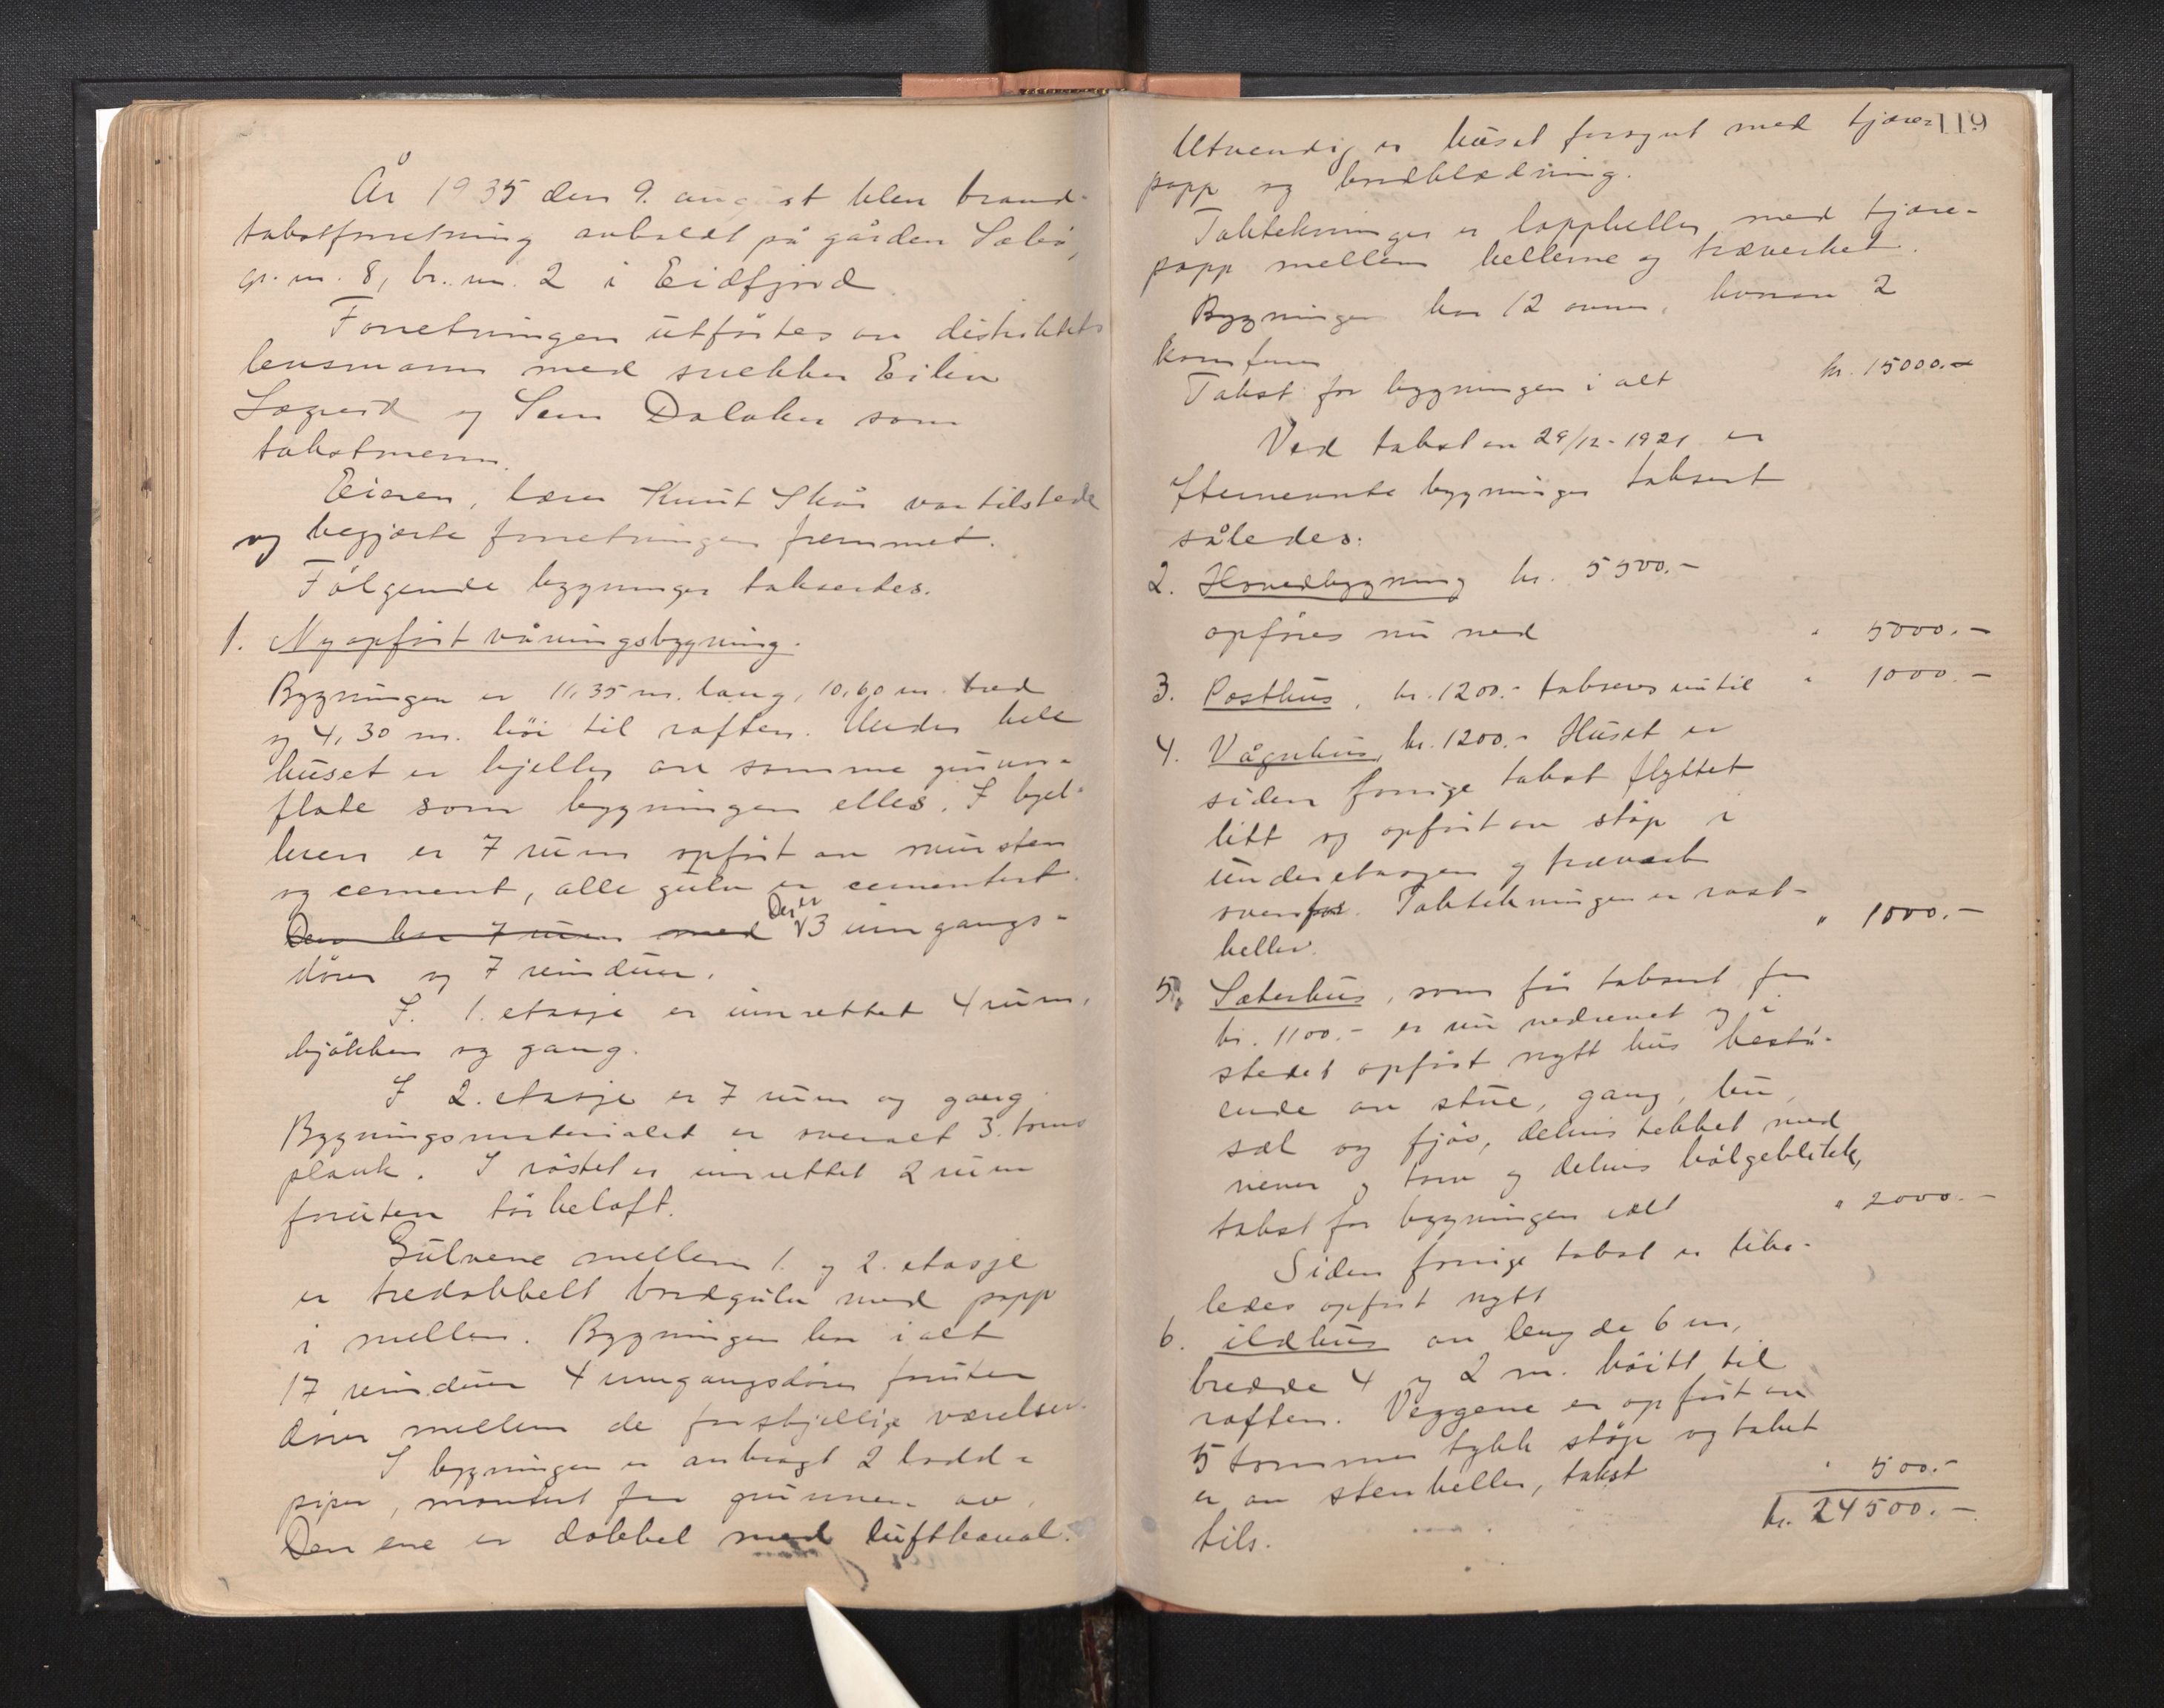 År 1935 den 9. august blev brand-
takstforretning avholdt på gården Sæbø,
gr. nr. 8, br. nr. 2 i Eidfjord
Forretningen utførtes av distriktets
lensmann med snekker Eiliv
Lægreid og Sem Dalaker som
takstmenn.
Eieren, lærer Knut Skår var tilstede
og begjærte forretningen fremmet.
Følgende bygninger takseredes.
1. Nyopført våningsbygning.
Bygningen er 11,35 m. lang, 10,60 m. bred
og 4,30 m. høi til raften. Under hele
huset er kjeller av samme grunn-
flate som bygningen elles. I kjel-
leren er 7 rum opført av mursten
og cement, alle gulv er cementert.
Den har 7 rum med Der er 3 inngangs-
dører og 7 vinduer.
I. 1. etasje er innrettet 4 rum,
kjøkken og gang.
I 2. etasje er 7 rum og gang
Bygningsmaterialet er overalt 3. toms
plank. I røstet er innrettet 2 rum
foruten tørkeloft.
Gulvene mellem 1. og 2. etasje
er tredobbelt bordgulv med papp
i mellem. Bygningen har i alt
17 vinduer 4 inngangsdører foruten
dører mellem de forskjellige værelser.
I bygningen er anbragt 2 
piper, montert fra grunnen av.
Den ene er dobbel med luftkanal.
119
Utvendig er huset forsynt med tjære-
papp og bordklædning.
Taktekningen er lappheller med tjære-
papp mellem hellerne og træverket.
Bygningen har 12 ovner, hvorav 2
komfurer
Takst for bygningen i alt kr. 15000.-
Ved takst av 29/12-1921 er
efternevnte bygninger taksert
således:
2. Hovedbygning kr. 5500.-
opføres nu med " 5000.-
3. Posthus, kr. 1200.- takseres nu til " 1000.-
4. Vågnhus, kr. 1200.- Huset er
siden forrige takst flyttet
litt og opført av støp i
underetasjen og træverk
ovenfor. Taktekningen er rast-
heller. " 1000.-
5. Sæterhus, som før taksert for
kr. 1100.- er nu nedrevet og i
stedet opført nytt hus bestå-
ende av stue, gang, bu,
sæl og fjøs, delvis tekket med
never og torv og delvis bølgeblikk,
takst for bygningen ialt " 2000.-
Siden forrige takst er like-
ledes opført nytt
6. ildhus av lengde 6 m,
bredde 4 og 2 m. høitt til
raften. Veggene er opført av
5 tommer tykk støp og taket
er av stenheller, takst " 500.-
tils. kr. 24500.-